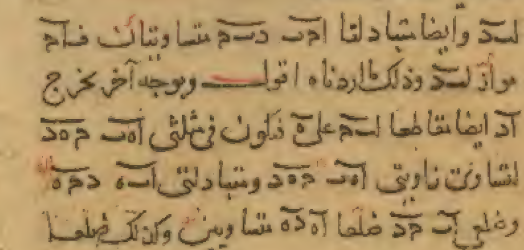 لـ ب د وأيضا متبادلتا ا ح ب د ب ح متساويتان فـ ا ح
مواز لـ ب د وذلك ما اردناه اقول وبوجه آخر نخرج
ا د ايضا متقاطعا لـ ب ح على ه فتكون في مثلثي ا ه ب ح ه د
لتساوي زاويتي ا ه ب ح ه د ومتبادلتي ا ب ه د ح ه
وضلعي ا ب ح د ضلعا ا ه د ه متساويين وكذلك ضلعا